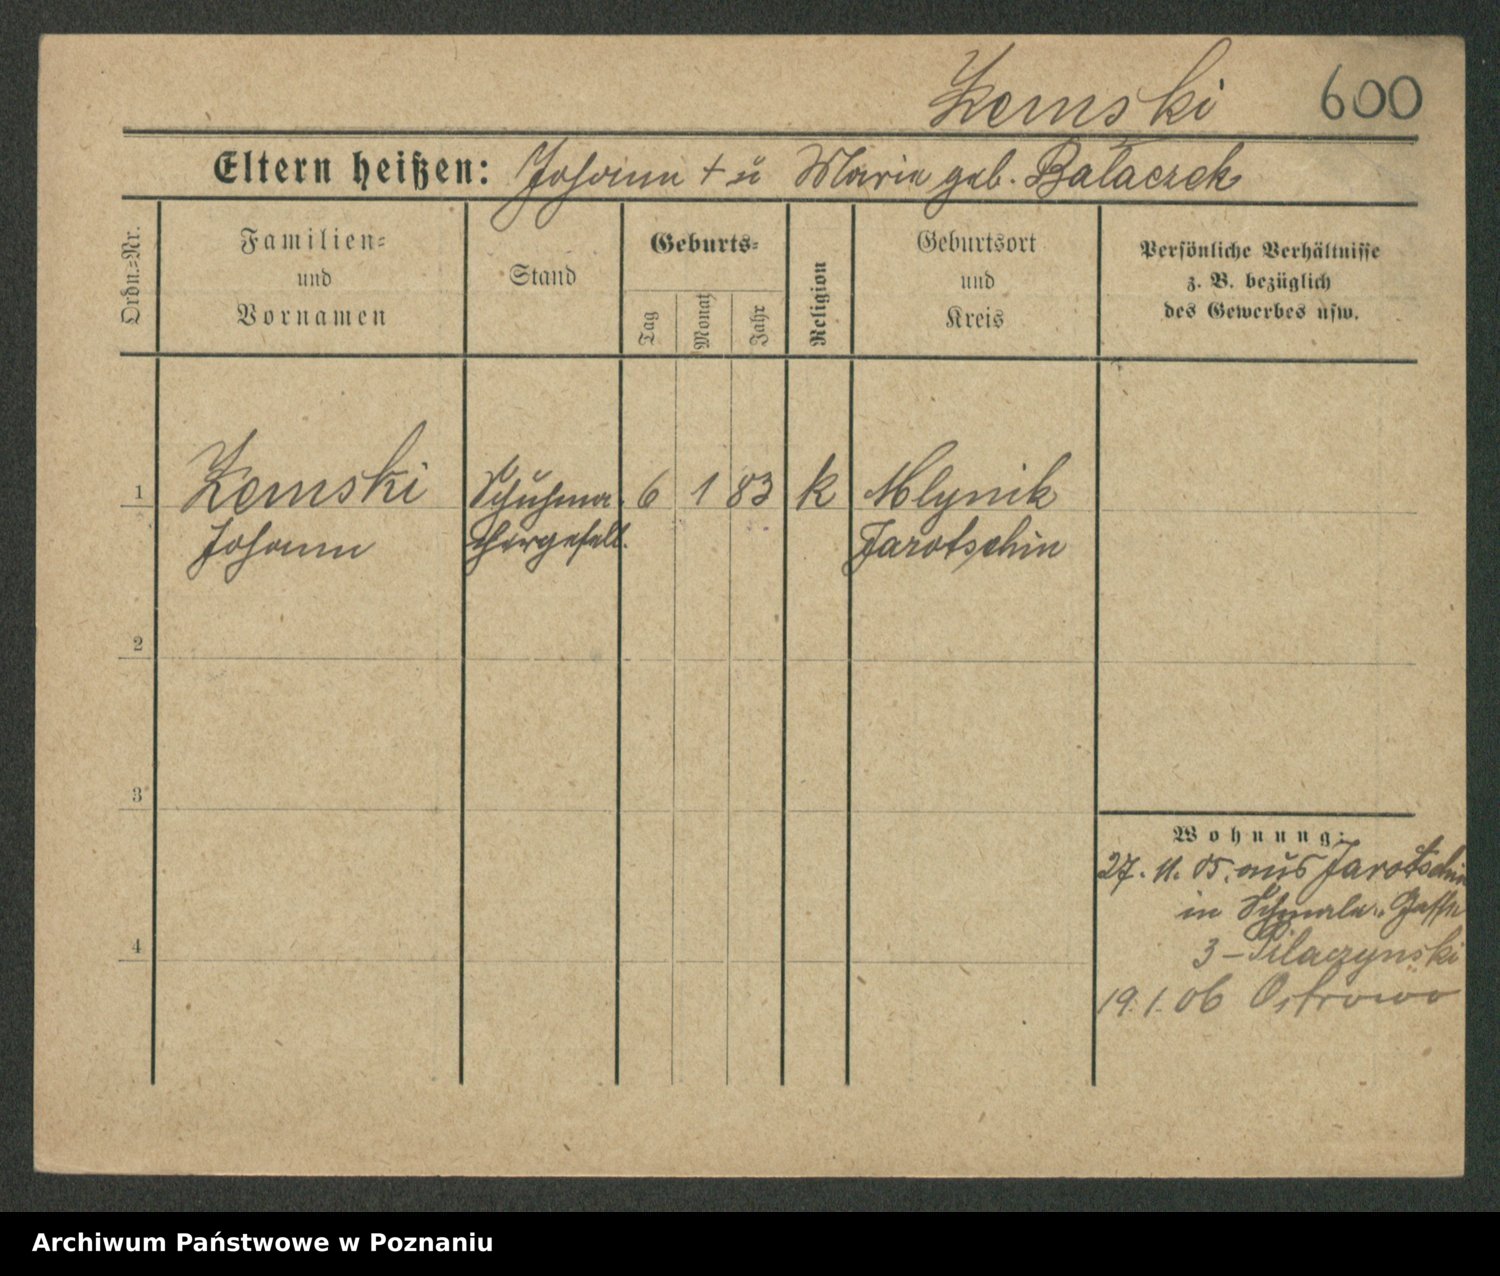 Zemski 600
Eltern heißen: Johann + u Marie geb. Balaczek
Ordn.=Nr.
Familien=
und
Vornamen
Stand
Geburts=
Tag
Monat
Jahr
Religion
Geburtsort
und
Kreis
Persönliche Verhältnisse
z. B. bezüglich
des Gewerbes usw.
1 Zemski Schuhma- 6 1 83 k Mlynik
Johann chergesell. Jarotschin
2
3
4
Wohnung:
27. 11. 05. aus Jarotschin
in Schmale Gasse
3 – Pilaczynski
19. 1. 06 Ostrowo
Archiwum Państwowe w Poznaniu